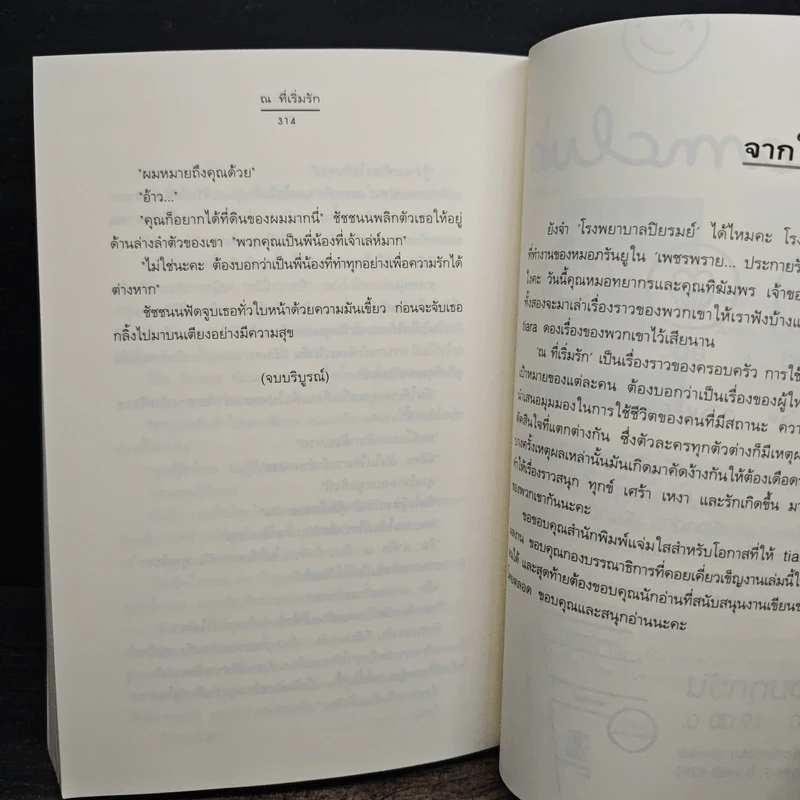 ณ ที่เริ่มรัก
314
"ผมหมายถึงคุณด้วย"
"อ้าว..."
"คุณก็อยากได้ที่ดินของผมมากนี่" ชัชชนนพลิกตัวเธอให้อยู่
ด้านล่างลำตัวของเขา "พวกคุณเป็นพี่น้องที่เจ้าเล่ห์มาก"
"ไม่ใช่นะคะ ต้องบอกว่าเป็นพี่น้องที่ทำทุกอย่างเพื่อความรักได้
ต่างหาก"
ชัชชนนฟัดจูบเธอทั่วใบหน้าด้วยความมันเขี้ยว ก่อนจะจับเธอ
กลิ้งไปมาบนเตียงอย่างมีความสุข
(จบบริบูรณ์)
จาก
ยังจำ 'โรงพยาบาลปิยรมย์' ได้ไหมคะ
ที่ทำงานของหมอภรันยูใน 'เพชรพราย... ประกาย
ไงคะ วันนี้คุณหมอทยากรและคุณทิฆัมพร
ทั้งสองจะมาเล่าเรื่องราวของพวกเขาให้เราฟังบ้าง
tiara ดองเรื่องของพวกเขาไว้เสียนาน
'ณ ที่เริ่มรัก' เป็นเรื่องราวของครอบครัว การใช้
เป้าหมายของแต่ละคน ต้องบอกว่าเป็นเรื่องของผู้
นำเสนอมุมมองในการใช้ชีวิตของคนที่มีสถานะ
ตัดสินใจที่แตกต่างกัน ซึ่งตัวละครทุกตัวต่างก็มี
บางครั้งเหตุผลเหล่านั้นมันเกิดมาคัดง้างกันให้ต้อง
ทำให้เรื่องราวสนุก ทุกข์ เศร้า เหงา และรักเกิดขึ้น
ของพวกเขากันนะคะ
ขอขอบคุณสำนักพิมพ์แจ่มใสสำหรับโอกาสที่ให้
ขอบคุณกองบรรณาธิการที่คอยเคี่ยวเข็ญงานเล่มนี้
และสุดท้ายต้องขอบคุณนักอ่านที่สนับสนุนงานเขียน
ขอบคุณและสนุกอ่านนะคะ